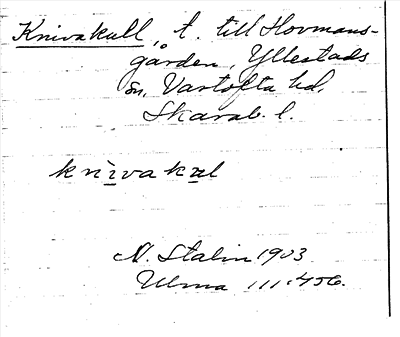 Knivakull, t. till Hovmans-
gården, Yllestads
sn, Vartofta hd,
Skarab. l.
knivakul
N. Stalin 1903
Ulma 111:456.